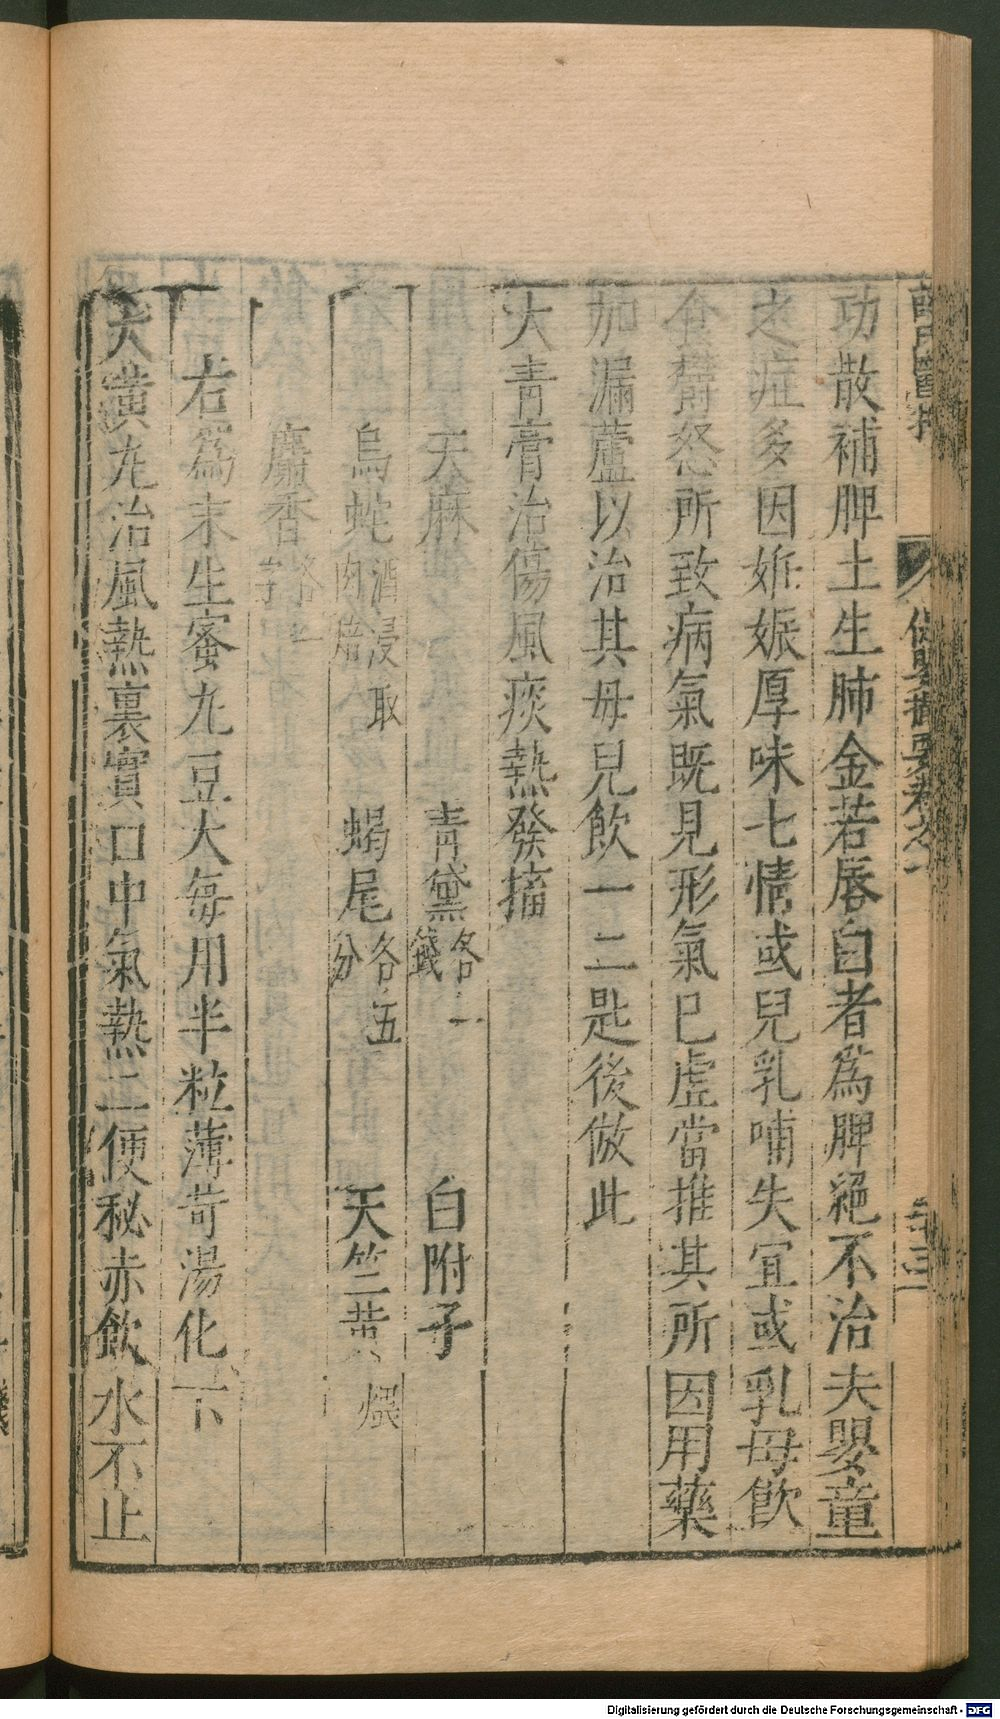 功散補脾土生肺金若唇白者爲脾絕不治夫嬰童
之症多因姙娠厚味七情或兒乳哺失宜或乳母飲
食欝怒所致病氣既見形氣已虛當推其所因用藥
加漏蘆以治其母兒飲一二匙後倣此
大青膏治傷風痰熱發搐
天麻 青黛各一錢 白附子
烏蛇酒浸取肉焙 蝎尾各五分 天竺黃煨
麝香各一字
右爲末生蜜丸豆大每用半粒薄荷湯化下
大黃丸治風熱裏實口中氣熱二便秘赤飲水不止
薛氏醫按 保嬰撮要卷之一
Digitalisierung gefördert durch die Deutsche Forschungsgemeinschaft - DFG